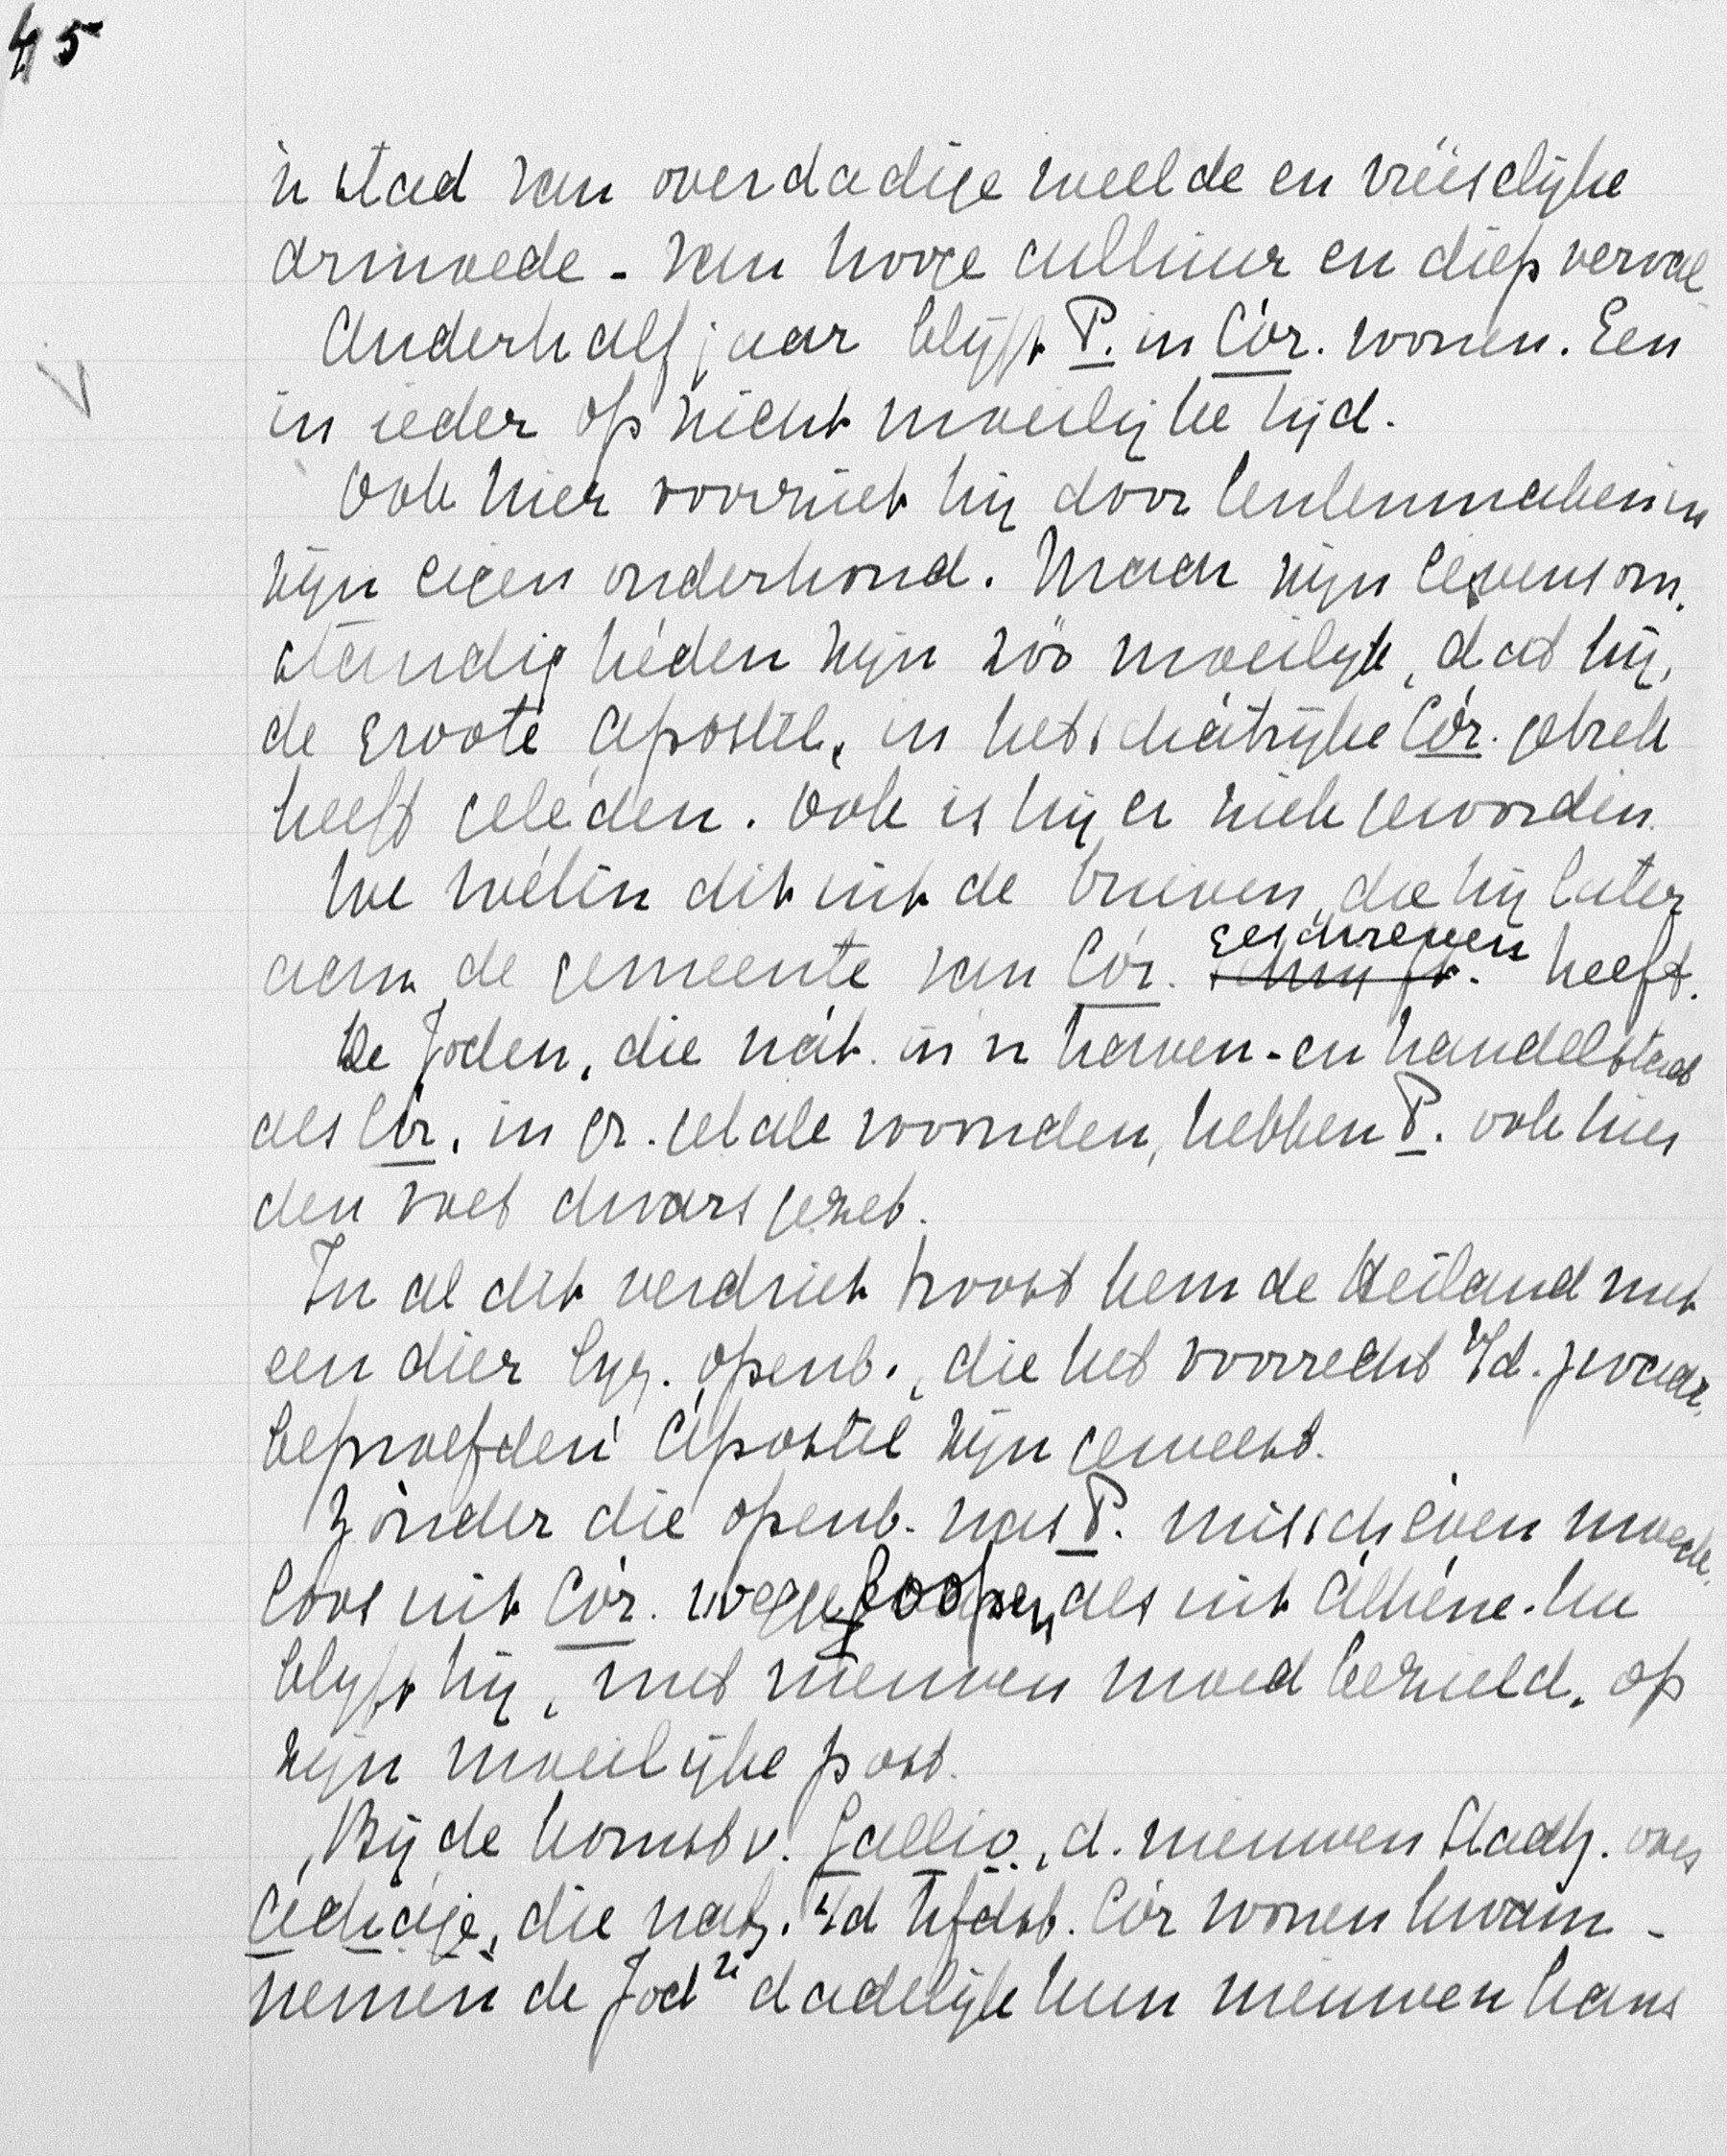 45
'n stad van overdadige weelde en vreeselijke
armoede - van hooge cultuur en diep verval
Anderhalf jaar blijft P. in Cor. wonen. Een
in ieder opzicht moeilijke tijd.
Ook hier voorziet hij door tentenmaken in
zijn eigen onderhoud. Maar zijn levensom-
standigheden zijn zóó moeilijk, dat hij,
de groote Apostel, in het schatrijke Cor. gebrek
heeft geleden. Ook is hij er ziek geworden.
We weten dit uit de brieven, die hij later
aan de gemeente van Cor. geschreven heeft.
De Joden, die nat. in 'n haven- en handelstad
als Cor. in gr. getale woonden, hebben P. ook hier
den voet dwars gezet.
In al dit verdriet troost hem de Heiland met
een dier byz. openb., die het voorrecht v/d. zwaar-
beproefden Apostel zijn geweest.
Zonder die openb. was P. missch even moede-
loos uit Cor. weggeloopen, als uit Athene. Nu
blijft hij, met nieuwen moed bezield, op
zijn moeilijke post.
Bij de komst v. Gallio, d. nieuwen Stadh. over
Achaje, die natz. i/d hfdst. Cor wonen kwam -
nemen de Jodn dadelijk hun nieuwen kans